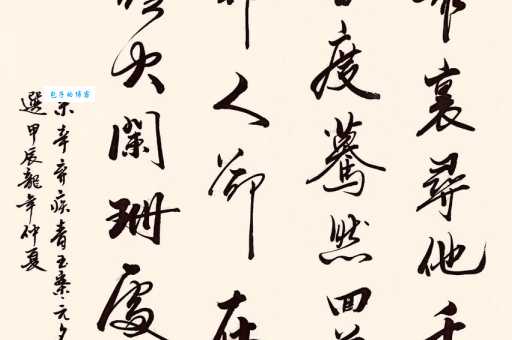 眾裏尋他千
百度驀然回首
那人卻在
燈火闌珊處
宋辛弃疾青玉案元夕
選甲辰龍年仲夏
包子的博客